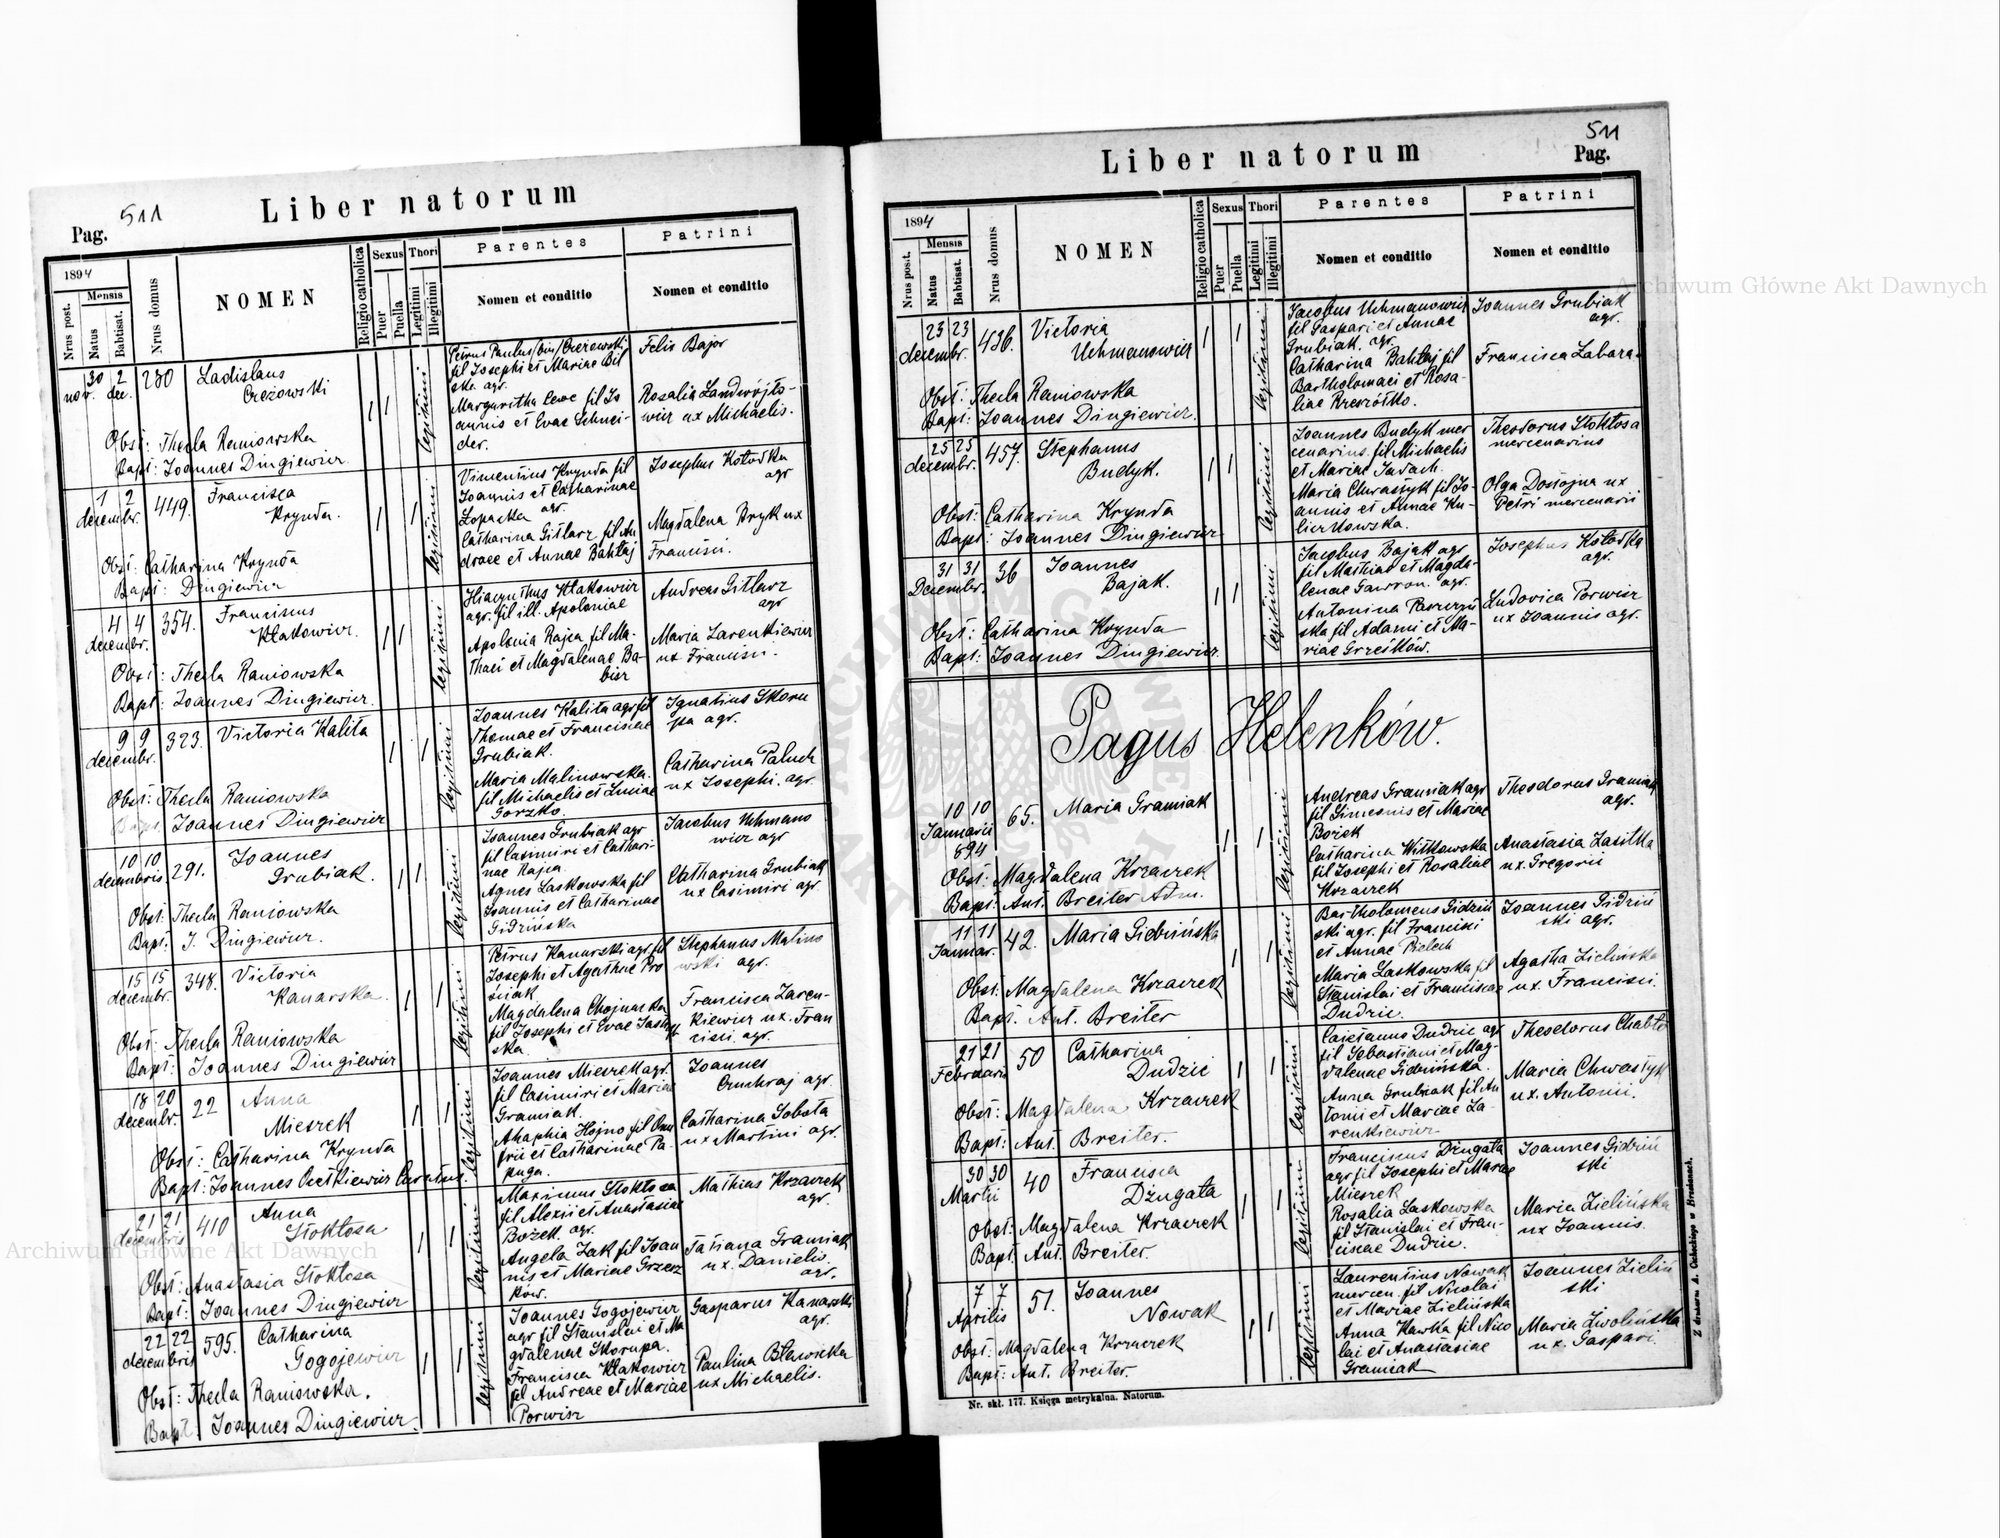 Liber natorum
Pag. 511
1894
Nrus post.
Mensis
Natus
Babtisat.
Nrus domus
NOMEN
Religio catholica
Sexus
Puer
Puella
Thori
Legitimi
Illegitimi
Parentes
Nomen et conditio
Patrini
Nomen et conditio
30 2
nov. dec.
280
Ladislaus
Obst: Thecla Raniowska
Bapt: Joannes Dingiewicz.
legitimi
fil Josephi et Mariae Bil
ska agr.
Margaritha fil Jo
annis et Evae Schnei-
der.
Felix Bajor
Rosalia Landwójto-
wicz ux Michaelis.
1 2
decembr.
449.
Francisca
Krynda.
Obst: Catharina Krynda
Bapt: Dingiewicz
legitimi
Vincentius Krynda fil
Joannis et Catharinae
Łopacka agr.
Catharina Gitlarz fil An
dreae et Annae Bahłaj
Josephus Kołodka
agr
Magdalena Bryk ux
Francisci.
4 4
decembr.
354.
Franciscus
Kłakowicz.
Obst: Thecla Raniowska
Bapt: Joannes Dingiewicz.
legitimi
Hiacynthus Kłakowicz
agr. fil ill. Apoloniae
Apolonia Rajca fil Ma-
thaei et Magdalenae Ba-
bisz
Andreas Gitlarz
agr
Maria Zarenkiewicz
ux Francisci.
9 9
decembr.
323.
Victoria Kalita
Obst: Thecla Raniowska
Bapt. Joannes Dingiewicz
legitimi
Joannes Kalita agr fil
Thomae et Franciscae
Grubiak.
Maria Malinowska
fil Michaelis et Luciae
Gorzko.
Ignatius Skoru
pa agr.
Catharina Paluch
ux Josephi. agr.
10 10
decembris
291.
Joannes
Grubiak.
Obst: Thecla Raniowska
Bapt: J. Dingiewicz.
legitimi
Joannes Grubiak agr
fil Casimiri et Cathari-
nae Rajca
Agnes Laskowska fil
Joannis et Catharinae
Gidzińska
Jacobus Uchmano
wicz agr
Catharina Grubiak
ux Casimiri agr.
15 15
decembr.
348.
Victoria
Kanarska.
Obst: Thecla Raniowska
Bapt: Joannes Dingiewicz
legitimi
Petrus Kanarski agr. fil
Josephi et Agathae Pro
ściak
Magdalena Chojnacka
fil Josephi et Evae
ska.
Stephanus Malino
wski agr.
Francisca Zaren-
kiewicz ux. Fran
cisci agr.
18 20
decembr.
22
Anna
Mieszek
Obst: Catharina Krynda
Bapt: Joannes Cietkiewicz Curatus.
legitimi
Joannes Mieszek agr.
fil Casimiri et Mariae
Gramiak.
Ahaphia Hojno fil Onu
frii et Catharinae Pa
puga.
Joannes
agr.
Catharina Sobota
ux Martini agr.
21 21
decembris
410
Anna
Stokłosa
Obst: Anastasia Stokłosa
Bapt: Joannes Dingiewicz
legitimi
Maximus Stokłosa
fil Alexii et Anastasiae
Bożek agr.
Angela Żak fil Joan
nis et Mariae Grzesz
ków.
Mathias Krzaczek
agr.
Tatiana Gramiak
ux. Danielis
agr.
22 22
decembris
595.
Catharina
Gogojewicz
Obst: Thecla Raniowska.
Bapt. Joannes Dingiewicz.
legitimi
Joannes Gogojewicz
agr fil Stanislai et Ma
gdalenae Skorupa.
Francisca Kłakowicz
fil Andreae et Mariae
Porwisz
Gasparus Kanarski
agr.
Paulina Bławicka
ux Michaelis.
511
Liber natorum
Pag.
1894
Nrus post.
Mensis
Natus
Babtisat.
Nrus domus
NOMEN
Religio catholica
Sexus
Puer
Puella
Thori
Legitimi
Illegitimi
Parentes
Nomen et conditio
Patrini
Nomen et conditio
23 23
decembr.
436.
Victoria
Uchmanowicz
Obst: Thecla Raniowska
Bapt: Joannes Dingiewicz.
legitimi
Jacobus Uchmanowicz
fil Gaspari et Annae
Grubiak. agr.
Catharina Bahłaj fil
Bartholomaei et Rosa-
liae
Joannes Grubiak
agr.
Francisca Zabara
25 25
decembr.
457.
Stephanus
Budyk.
Obst: Catharina Krynda
Bapt: Joannes Dingiewicz
legitimi
Joannes Budyk mer
cenarius. fil Michaelis
et Mariae Sadach.
Maria Chwastyk fil Jo-
annis et Annae Ku-
Theodorus Stokłosa
mercenarius
Olga Dostojna ux
Petri mercenarii
31 31
Decembr.
36
Joannes
Bajak.
Obst: Catharina Krynda
Bapt: Joannes Dingiewicz.
legitimi
Jacobus Bajak agr
fil Mathiae et Magda-
lenae Gawron. agr.
Antonina
ska fil Adami et Ma-
riae Grześków.
Josephus Kołodka
agr.
Ludovica Porwisz
ux Joannis agr.
Pagus Helenków.
10 10
Januarii
894
65.
Maria Gramiak
Obst: Magdalena Krzaczek
Bapt: Ant. Breiter Adm.
legitimi
Andreas Gramiak agr
fil Simeonis et Mariae
Bożek
Catharina Witkowska
fil Josephi et Rosaliae
Krzaczek
Theodorus Gramiak
agr.
Anastasia Zasitka
ux. Gregorii
11 11
Januar.
42.
Maria Giedzińska
Obst: Magdalena Krzaczek
Bapt. Ant. Breiter
legitimi
Bartholomeus Gidziń
ski agr. fil Francisci
et Annae Bielech
Maria Laskowska fil
Stanislai et Franciscae
Dudzic.
Joannes Gidziń
ski agr.
Agatha Zielińska
ux. Francisci.
21 21
Februarii
50
Catharina
Dudzic
Obst: Magdalena Krzaczek
Bapt: Ant. Breiter.
legitimi
Caietanus Dudzic agr
fil Sebastiani et Mag-
dalenae Gidzińska.
Anna Grubiak fil An
tonii et Mariae Za-
renkiewicz
Theodorus Chabło
Maria Chwastyk
ux. Antonii.
30 30
Martii
40
Francisca
Dżugała
Obst: Magdalena Krzaczek
Bapt. Ant. Breiter.
legitimi
Franciscus Dżugała
agr fil Josephi et Mariae
Mieszek
Rosalia Laskowska
fil Stanislai et Fran-
ciscae Dudzic.
Joannes Gidziń
ski
Maria Zielińska
ux Joannis.
7 7
Aprilis
51.
Joannes
Nowak
Obst: Magdalena Krzaczek
Bapt: Ant. Breiter.
legitimi
Laurentius Nowak
mercen. fil Nicolai
et Mariae Zielińska
Anna Kawka fil Nico
lai et Anastasiae
Gramiak
Joannes Zieliń
ski
Maria Zwolińska
ux. Gaspari
Nr. skł. 177. Księga metrykalna. Natorum.
Z drukarni A. Cichockiego w Brzeżanach.
Archiwum Główne Akt Dawnych
Archiwum Główne Akt Dawnych